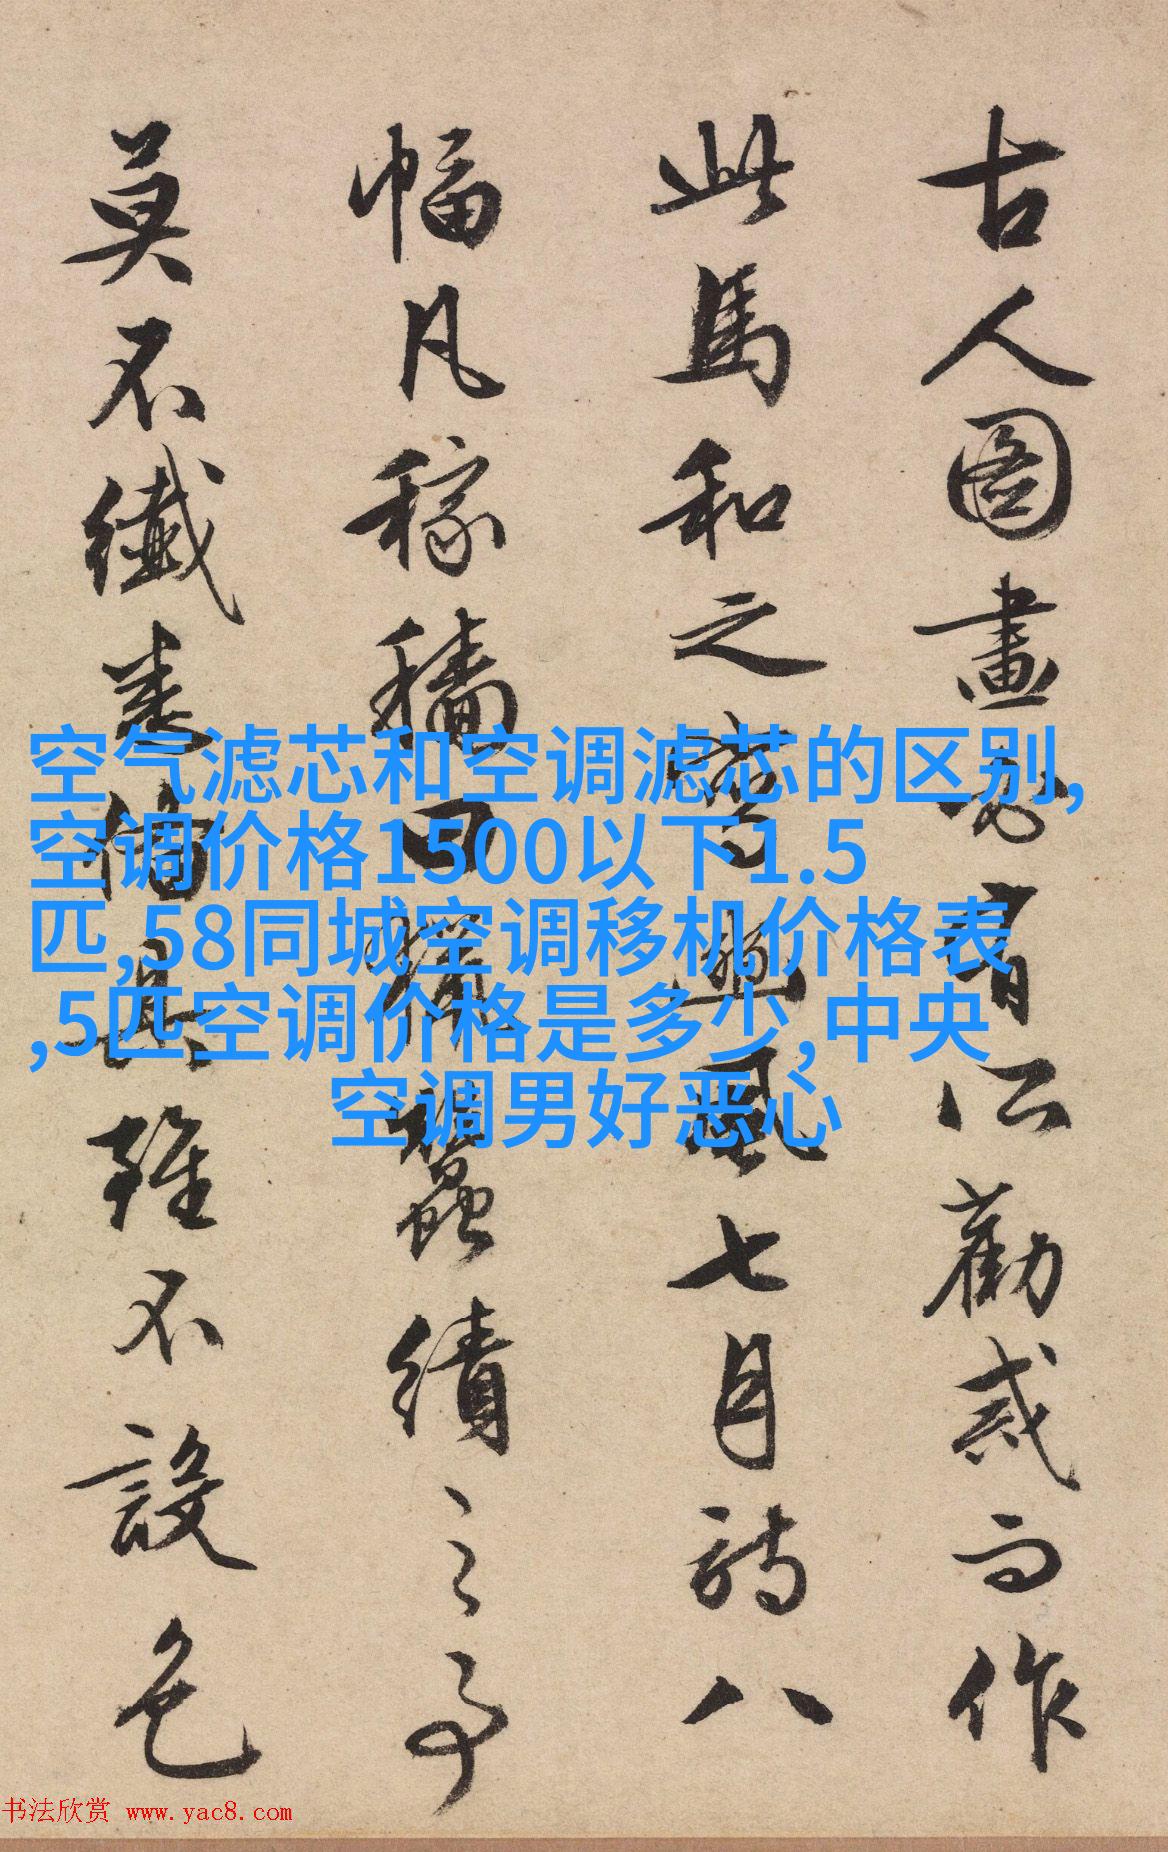 古人圖畫必有所勸戒而作
此馬和之寫豳風七月詩八
幅凡稼穡田獵蠶績之事
莫不纖悉備具雖不設色
空气滤芯和空调滤芯的区别,
空调价格1500以下1.5
匹,58同城空调移机价格表
,5匹空调价格是多少,中央
空调男好恶心
书法欣赏 www.yac8.com